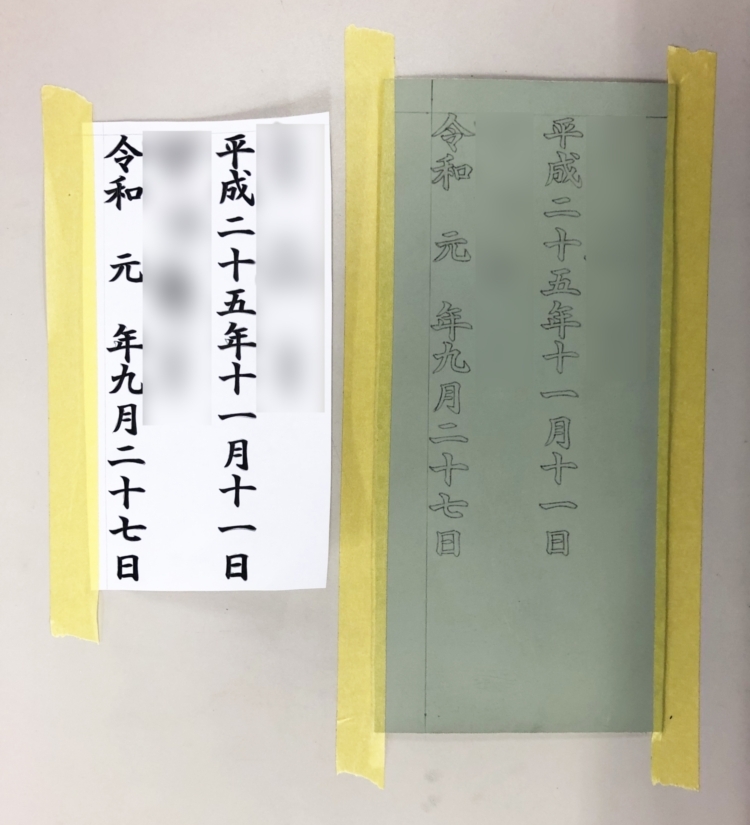 平成二十五年十一月十一日
令和　元　年九月二十七日
平成二十五年十一月十一日
令和　元　年九月二十七日